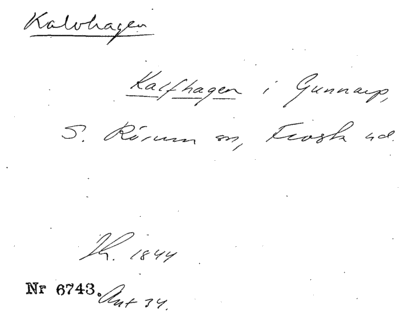 Kalvhagen
Kalfhagen i Gunnarp,
S. Rörum sn, Frosta hd.
Th. 1844
Nr 6743. Ant 34.